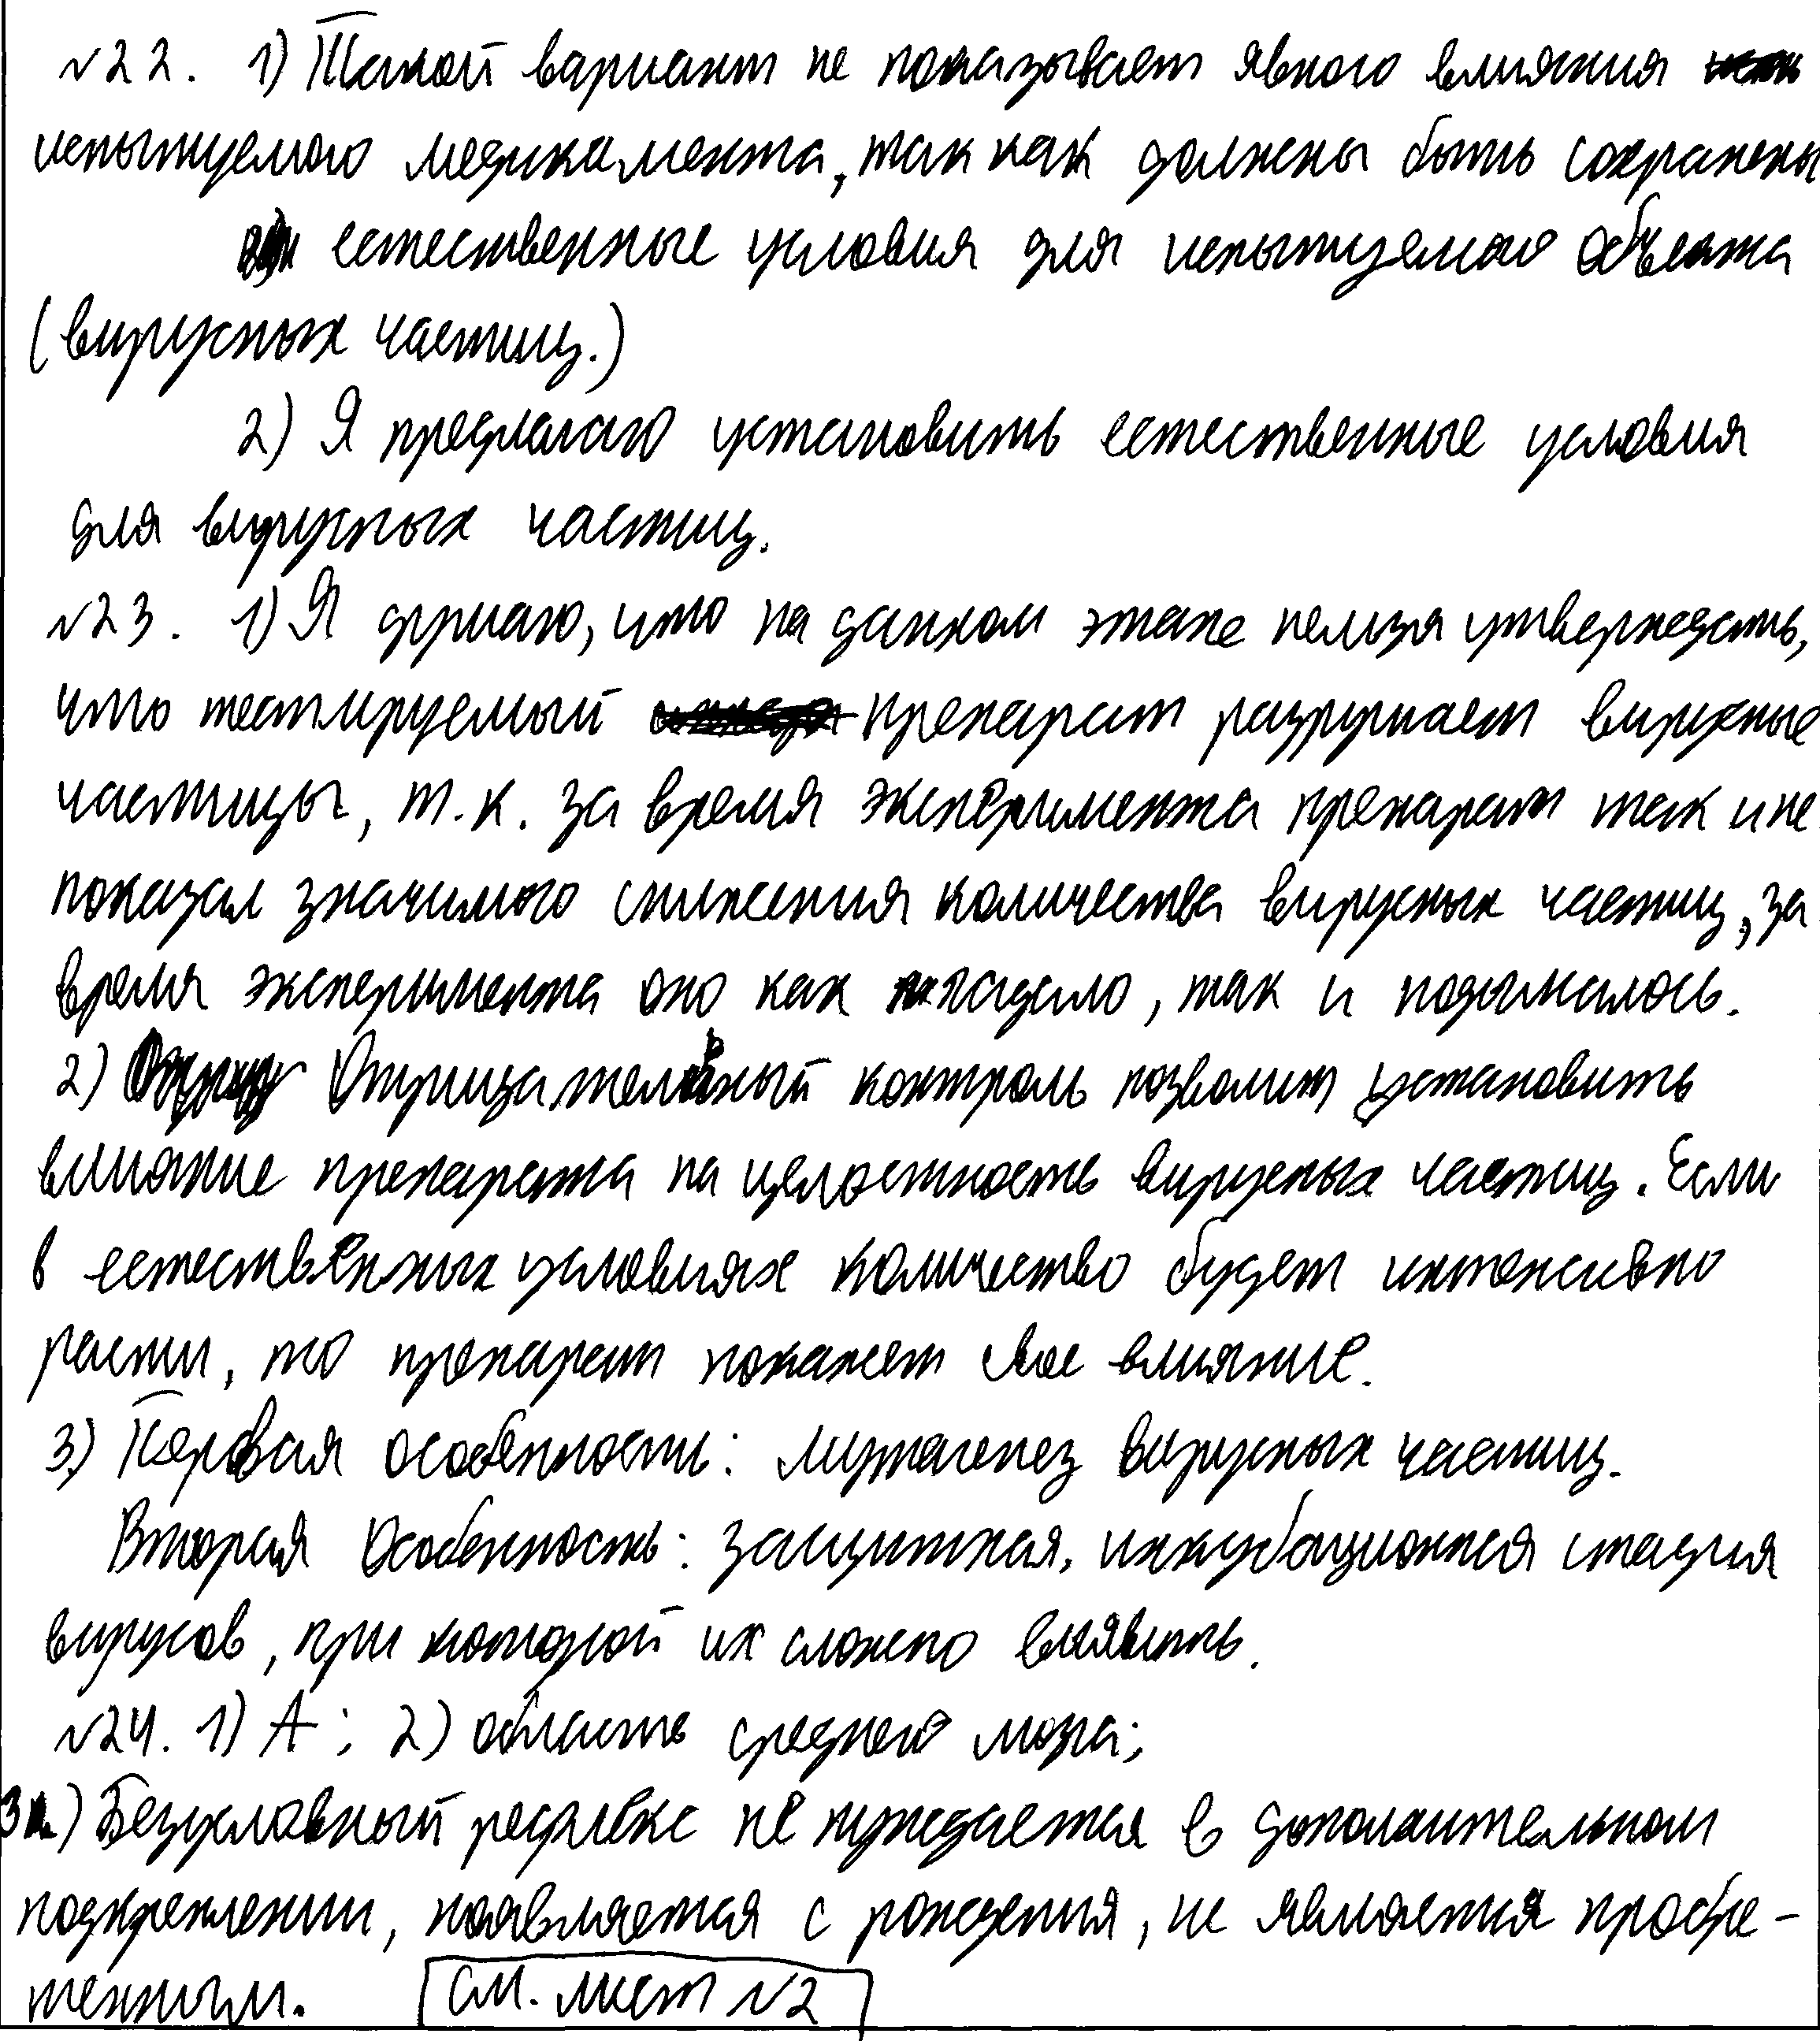 №22. 1) Такой вариант не показывает явного влияния
испытуемого медикамента, так как должны быть сохранены
естественные условия для испытуемого объекта
(вирусных частиц.)
2) Я предлагаю установить естественные условия
для вирусных частиц.
№23. 1) Я думаю, что на данном этапе нельзя утверждать,
что тестируемый препарат разрушает вирусные
частицы, т.к. за время эксперимента препарат так и не
показал значимого снижения количества вирусных частиц, за
время эксперимента оно как падало, так и поднималось.
2) Отрицательный контроль позволит установить
влияние препарата на целостность вирусных частиц. Если
в естественных условиях количество будет интенсивно
расти, то препарат покажет свое влияние.
3) Первая особенность: мутагенез вирусных частиц.
Вторая особенность: защитная, инкубационная стадия
вирусов, при которой их сложно выявить.
№24. 1) А; 2) область средней мозга;
3) Безусловный рефлекс не нуждается в дополнительном
подкреплении, появляется с рождения, не является приобре-
тенным. см. лист №2